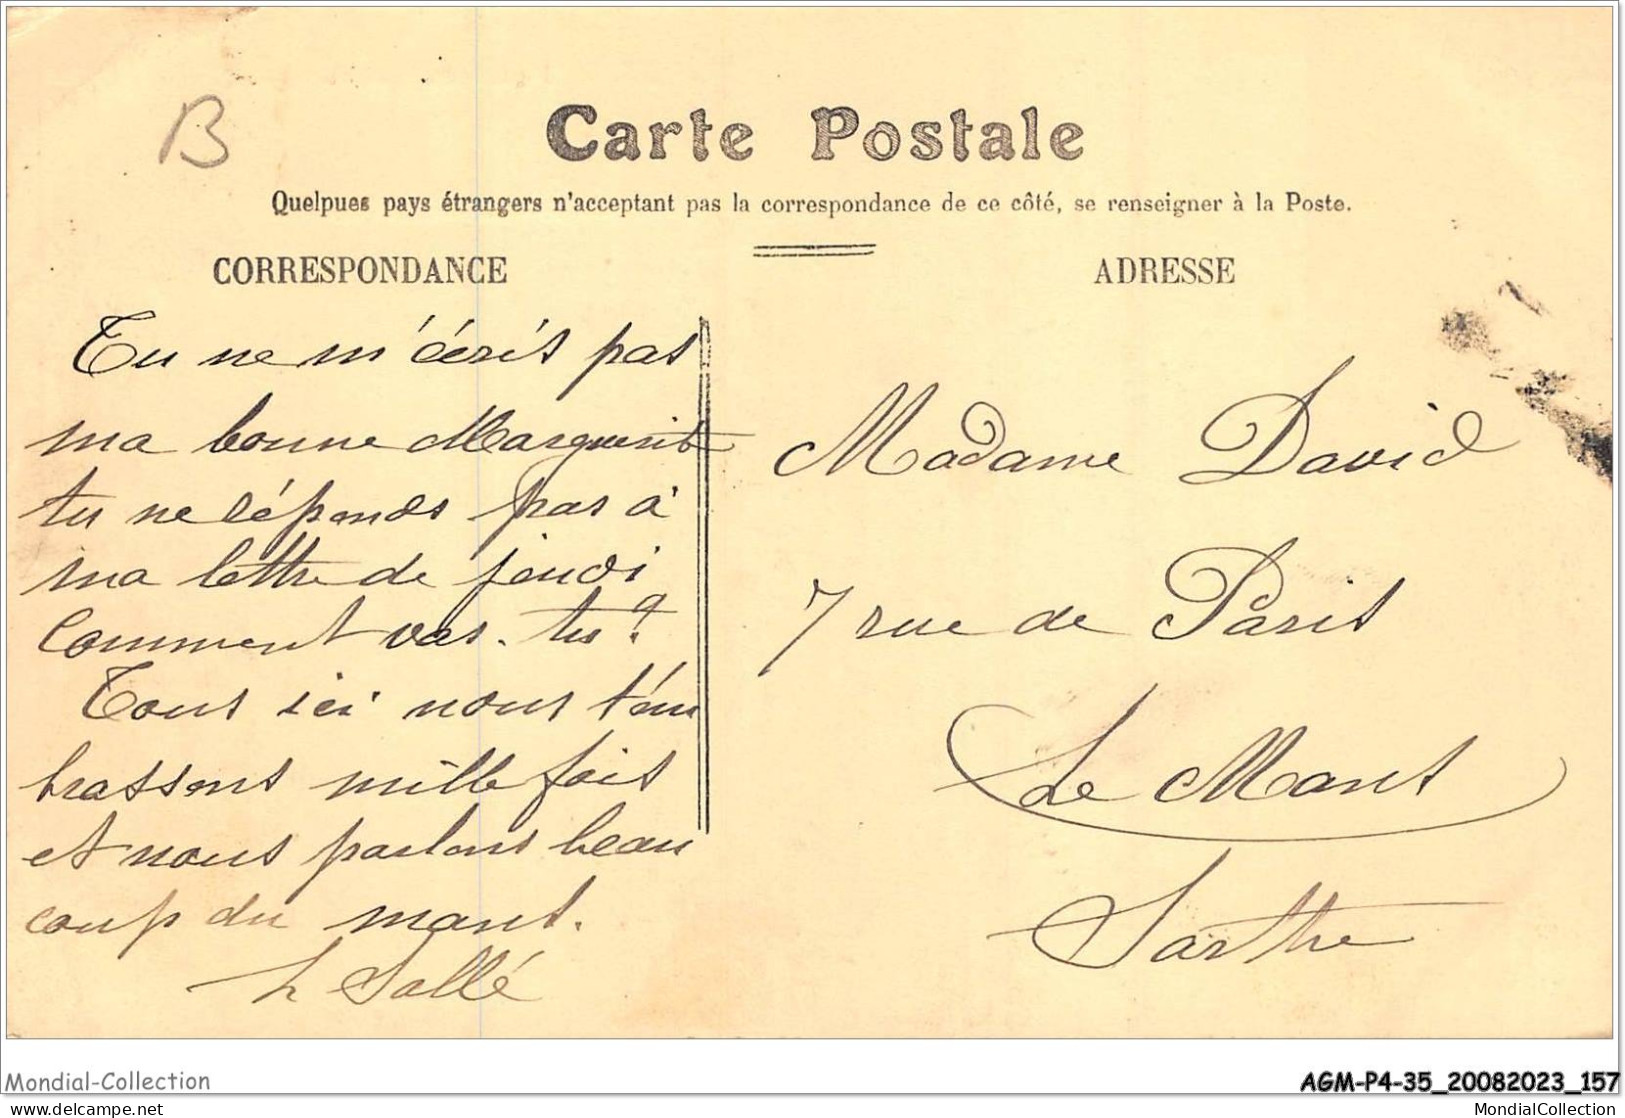 B
Carte Postale
Quelques pays étrangers n'acceptant pas la correspondance de ce côté, se renseigner à la Poste.
CORRESPONDANCE
Tu ne m'écris pas
ma bonne Marguerite
tu ne réponds pas à
ma lettre de jeudi
Comment vas-tu?
Tous ici nous t'em
brassons mille fois
et nous parlons beau
coup du mans.
L Sallé
ADRESSE
Madame David
7 rue de Paris
Le Mans
Sarthe
Mondial-Collection
AGM-P4-35_20082023_157
delcampe.net
MondialCollection